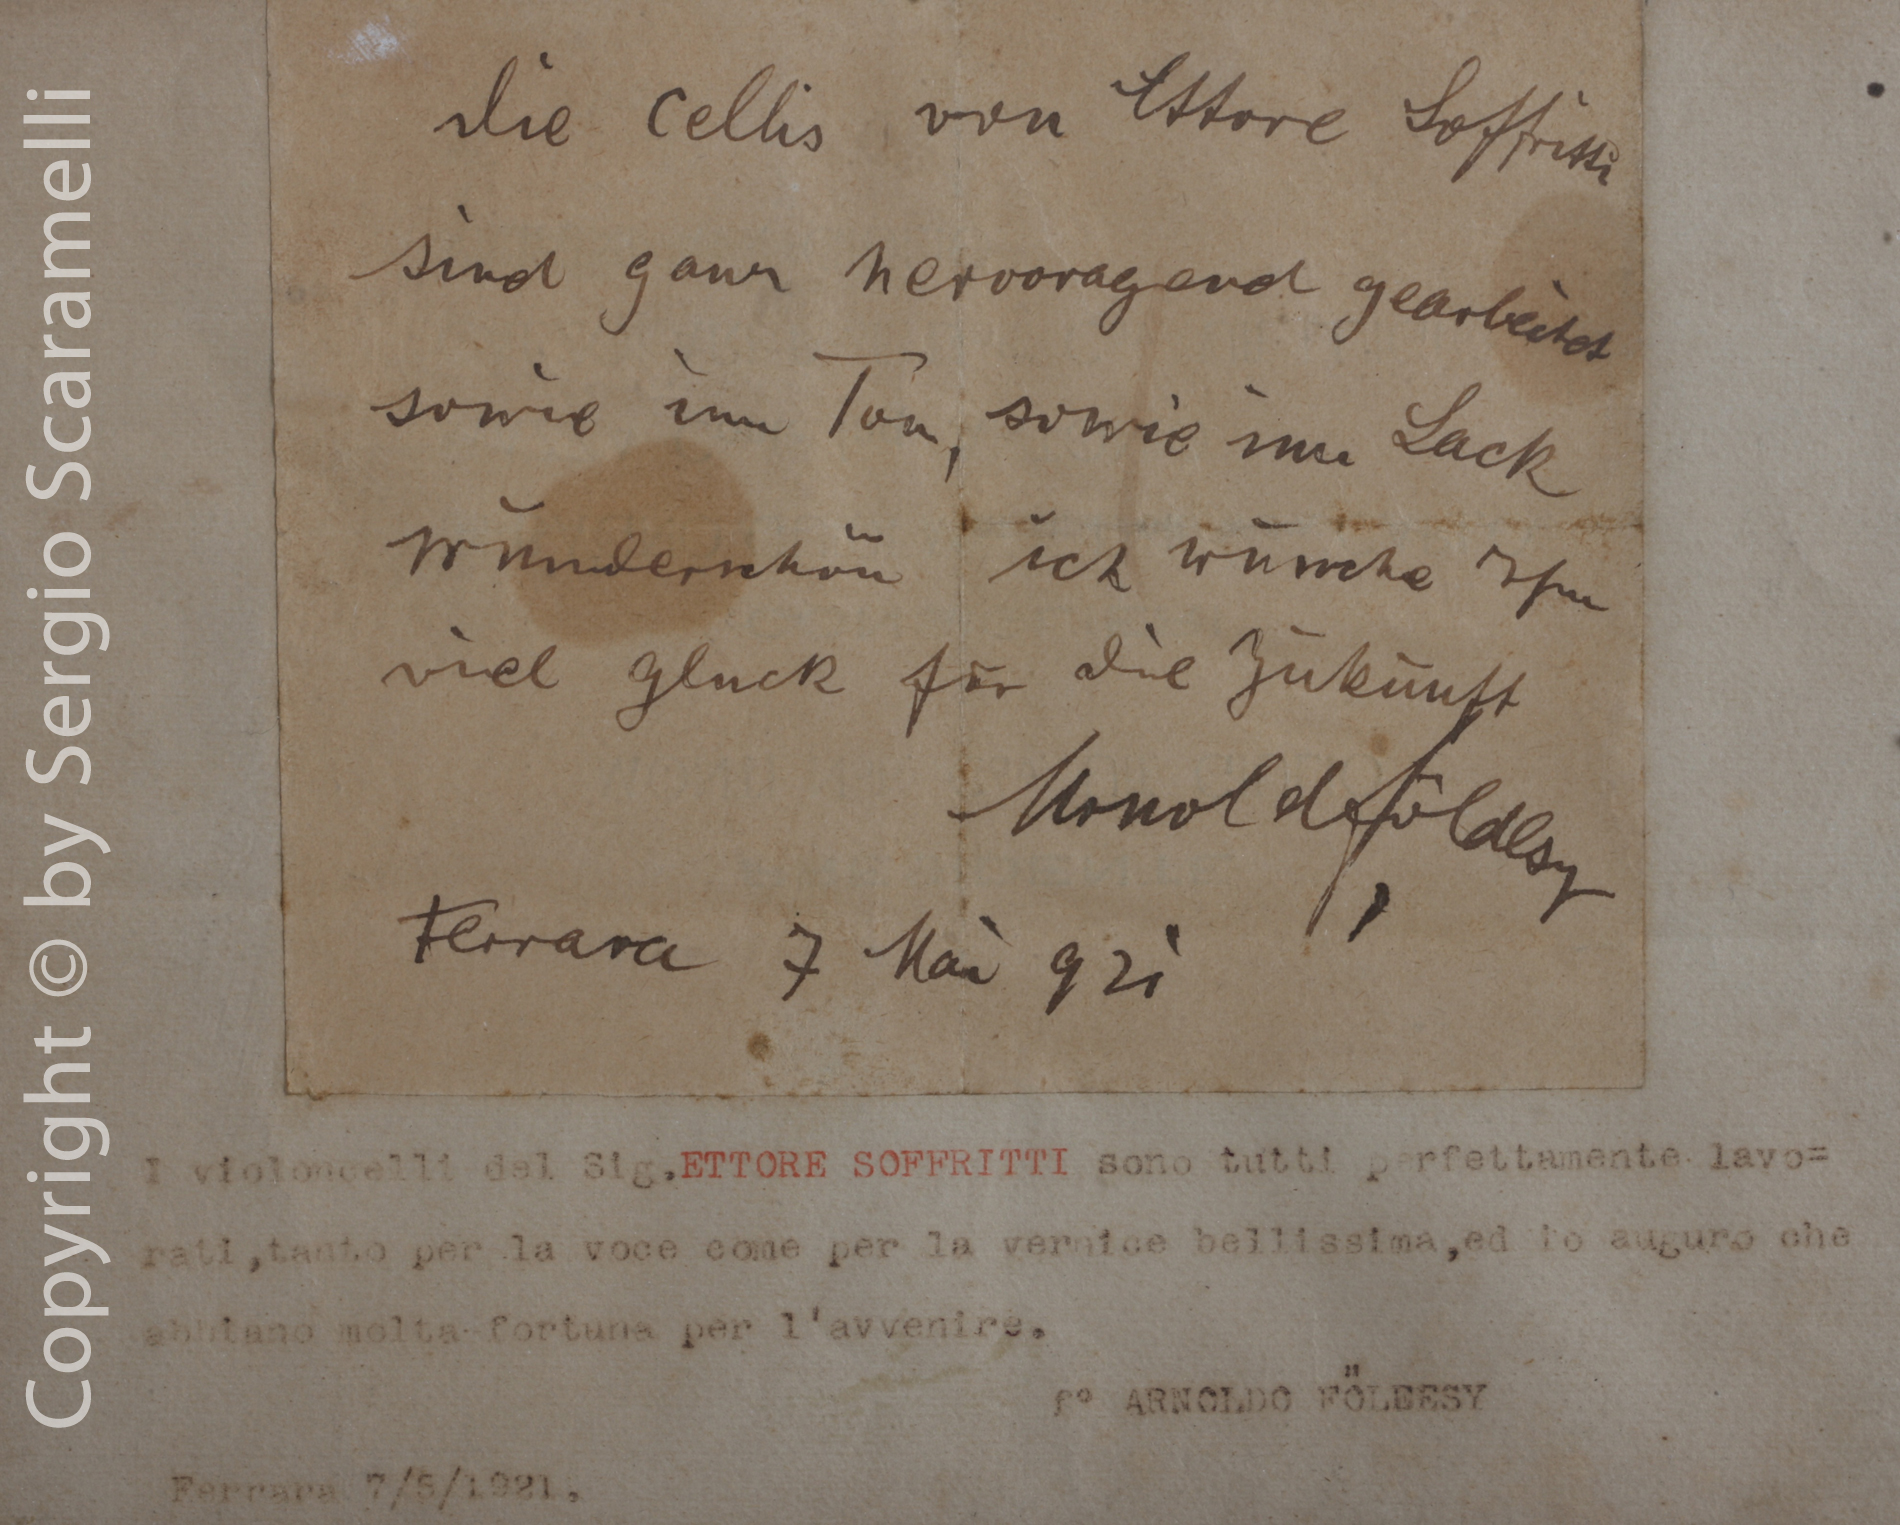 Die Cellis von Ettore Soffritti
sind ganz hervoragend gearbeitet
sowie im Ton, sowie im Lack
wunderschön ich wünche Ihm
viel gluck für die Zukunft
Arnold Földesy
Ferrara 7 Mai 921
I violoncelli del Sig.ETTORE SOFFRITTI sono tutti perfettamente lavo=
rati,tanto per la voce come per la vernice bellissima,ed io auguro che
abbiano molta fortuna per l'avvenire.
f° ARNOLDO FÖLEESY
Ferrara 7/5/1921.
Copyright © by Sergio Scaramelli